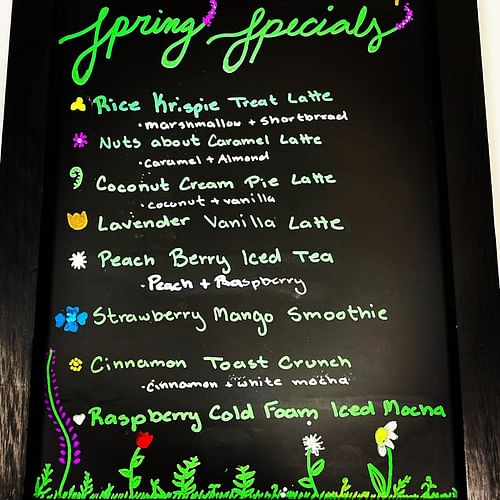 Spring Specials
Rice Krispie Treat Latte
• marshmallow + shortbread
Nuts about Caramel Latte
• caramel + Almond
Coconut Cream Pie Latte
• coconut + vanilla
Lavender Vanilla Latte
Peach Berry Iced Tea
• Peach + Raspberry
Strawberry Mango Smoothie
Cinnamon Toast Crunch
• cinnamon + white mocha
Raspberry Cold Foam Iced Mocha